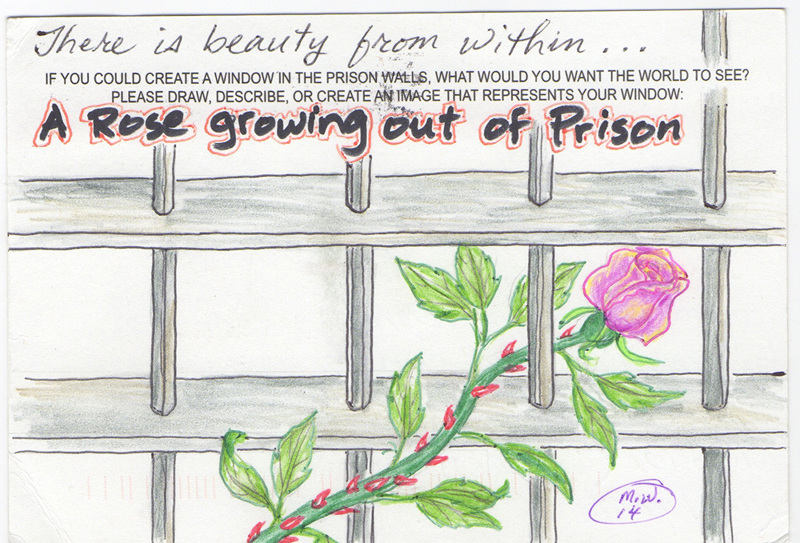 There is beauty from within...
IF YOU COULD CREATE A WINDOW IN THE PRISON WALLS, WHAT WOULD YOU WANT THE WORLD TO SEE?
PLEASE DRAW, DESCRIBE, OR CREATE AN IMAGE THAT REPRESENTS YOUR WINDOW:
A Rose growing out of Prison
M.W.
14